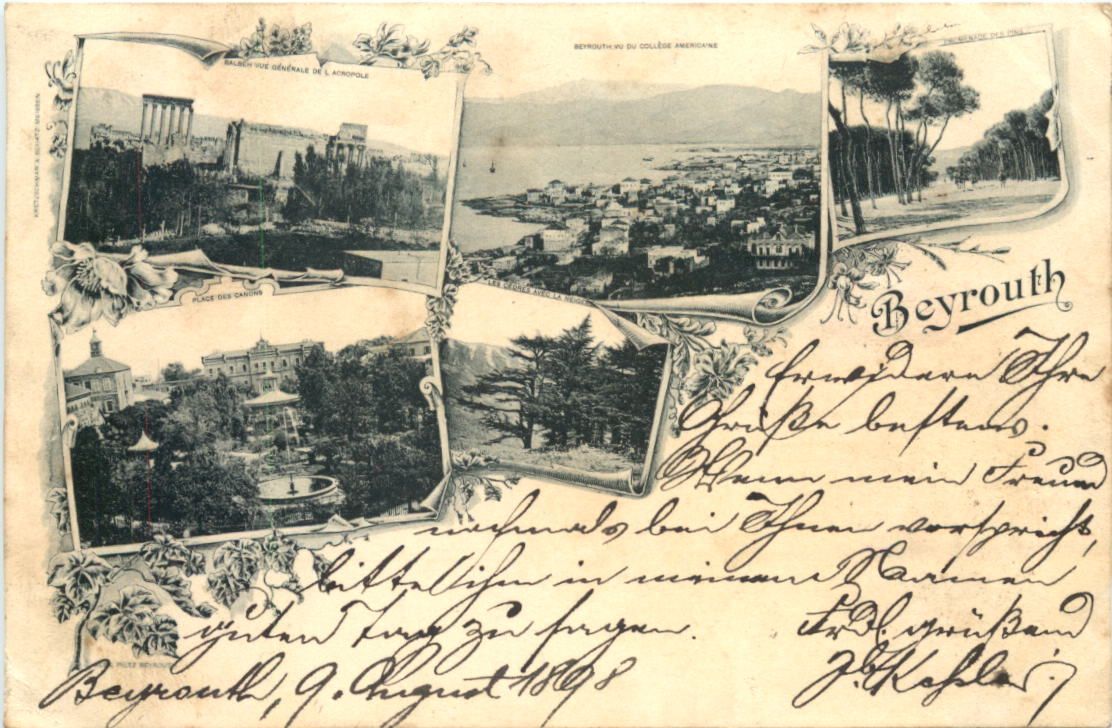 BALBEH VUE GÉNÉRALE DE L'ACROPOLE
BEYROUTH VU DU COLLÈGE AMERICAINE
PROMENADE DES PINS
KRETZSCHMAR & SCHATZ MEISSEN
PLACE DES CANONS
LES CÈDRES AVEC LA NEIGE
Beyrouth
Erwidere Ihre
Grüße bestens.
Wenn mein Freund
nochmals bei Ihnen vorspricht,
bitte ihm in meinem Namen
guten Tag zu sagen.
Frdl. grüßend
Beyrouth, 9. August 1898